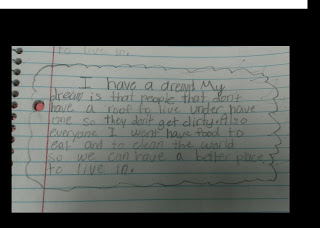 to live in.
I have a dream My
dream is that people that don't
have a roof to live under have
one so they don't get dirty. Also
everyone I want have food to
eat and to clean the world
so we can have a better place
to live in.